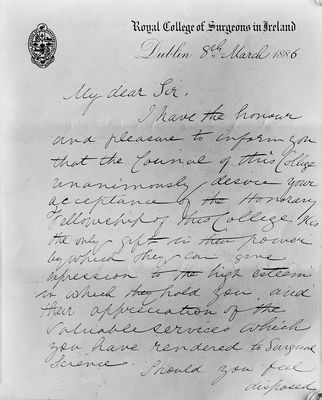 Royal College of Surgeons in Ireland
Dublin 8th March 1886
My dear Sir.
I have the honour
and pleasure to inform you
that the Council of this College
unanimously desire your
acceptance of the Honorary
Fellowship of this College
the only gift in their power
by which they can give
expression to the high esteem
in which they hold you and
their appreciation of the
valuable services which
you have rendered to Surgical
Science. Should you feel
disposed